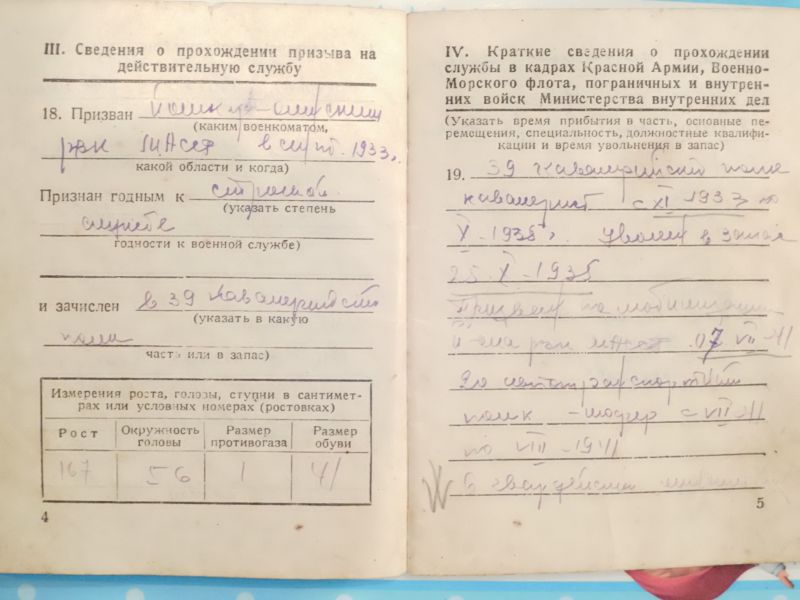 III. Сведения о прохождении призыва на
действительную службу
18. Призван
(каким военкоматом,
1933г.
какой области и когда)
Признан годным к строевой
(указать степень
службе
годности к военной службе)
и зачислен в 39 кавалерийский
(указать в какую
полк
часть или в запас)
Измерения роста, головы, ступни в сантимет-
рах или условных номерах (ростовках)
Рост Окружность головы Размер противогаза Размер обуви
167 56 1 41
4
IV. Краткие сведения о прохождении
службы в кадрах Красной Армии, Военно-
Морского флота, пограничных и внутрен-
них войск Министерства внутренних дел
(Указать время прибытия в часть, основные пе-
ремещения, специальность, должностные квалифи-
кации и время увольнения в запас)
19. 39 кавалерийский полк
кавалерист с XI 1933 по
X-1935г. уволен в запас
25 X-1935
Призван по мобилизации
07 VII-41
полк - шофер с VII-41
по VIII-1941
в гвардейский
5